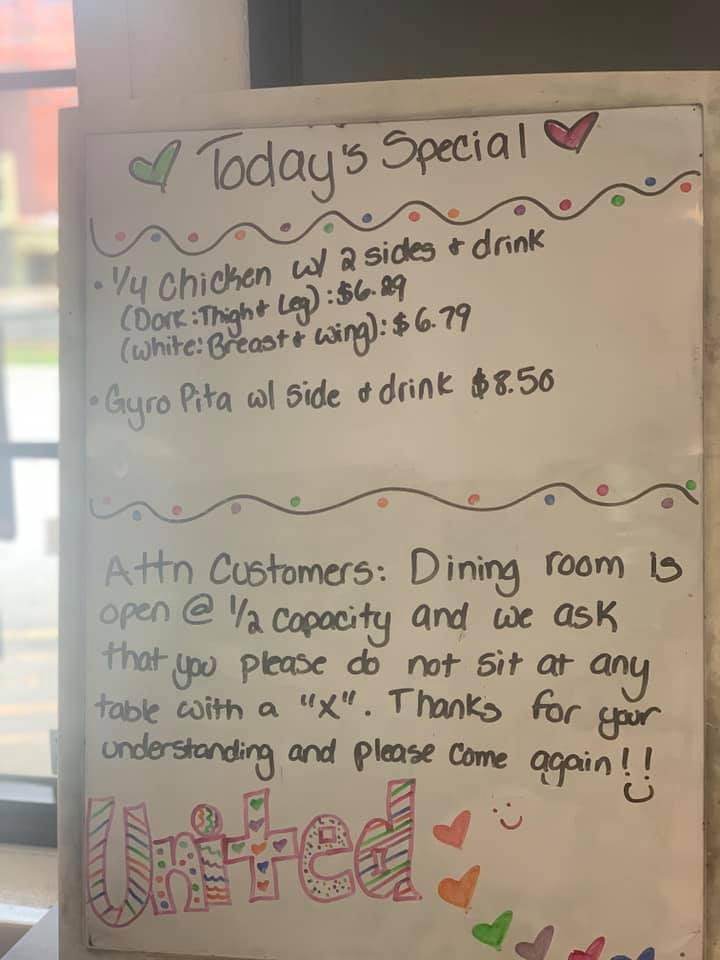 Today's Special
• 1/4 Chicken w/ 2 sides & drink
(Dark: Thigh & Leg): $6.29
(White: Breast & wing): $6.79
• Gyro Pita w/ side & drink $8.50
Attn Customers: Dining room is
open @ 1/2 capacity and we ask
that you please do not sit at any
table with a "X". Thanks for your
understanding and please come again!!
United